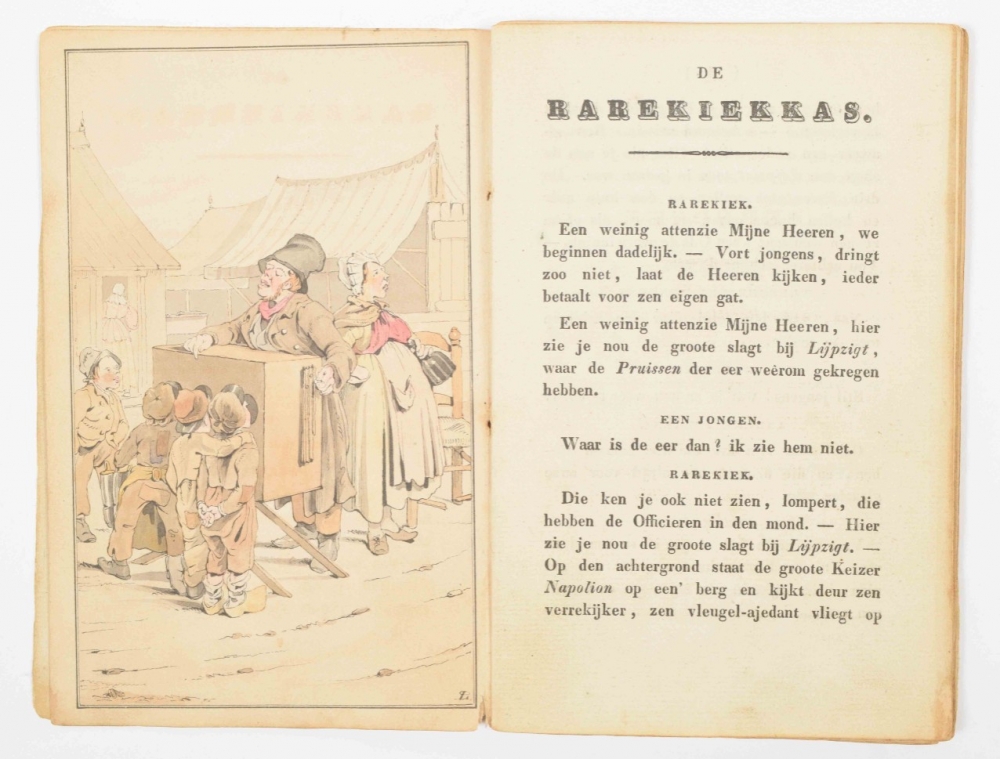 DE
RAREKIEKKAS.
RAREKIEK.
Een weinig attenzie Mijne Heeren, we
beginnen dadelijk. — Vort jongens, dringt
zoo niet, laat de Heeren kijken, ieder
betaalt voor zen eigen gat.
Een weinig attenzie Mijne Heeren, hier
zie je nou de groote slagt bij Lijpzigt,
waar de Pruissen der eer weêrom gekregen
hebben.
EEN JONGEN.
Waar is de eer dan? ik zie hem niet.
RAREKIEK.
Die ken je ook niet zien, lompert, die
hebben de Officieren in den mond. — Hier
zie je nou de groote slagt bij Lijpzigt. —
Op den achtergrond staat de groote Keizer
Napolion op een' berg en kijkt deur zen
verrekijker, zen vleugel-ajedant vliegt op